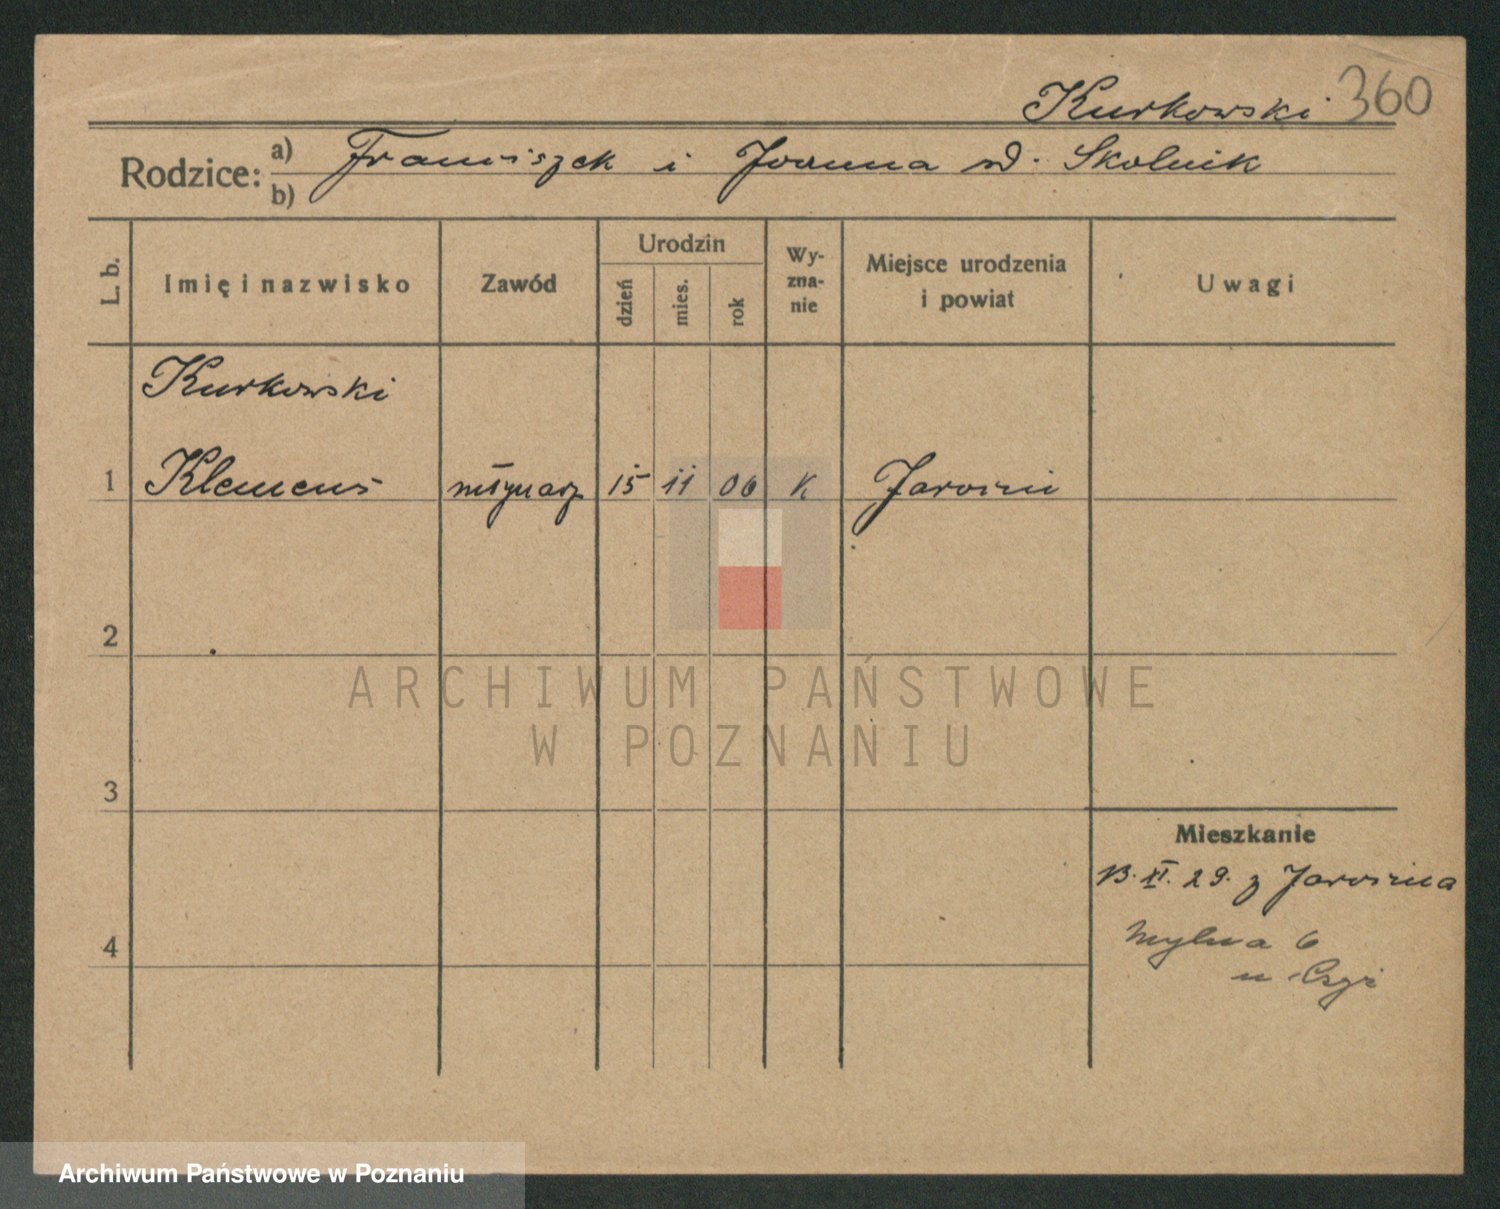 Kurkowski 360
Rodzice: a) Franciszek i Joanna d. Skolnik
b)
L. b. Imię i nazwisko Zawód Urodzin dzień mies. rok Wy-zna-nie Miejsce urodzenia i powiat Uwagi
Kurkowski
1 Klemens młynarz 15 11 06 K Jarocin
2
ARCHIWUM PAŃSTWOWE
W POZNANIU
3
Mieszkanie
13. XI. 29. z Jarocina
4 Mylna 6
u
Archiwum Państwowe w Poznaniu